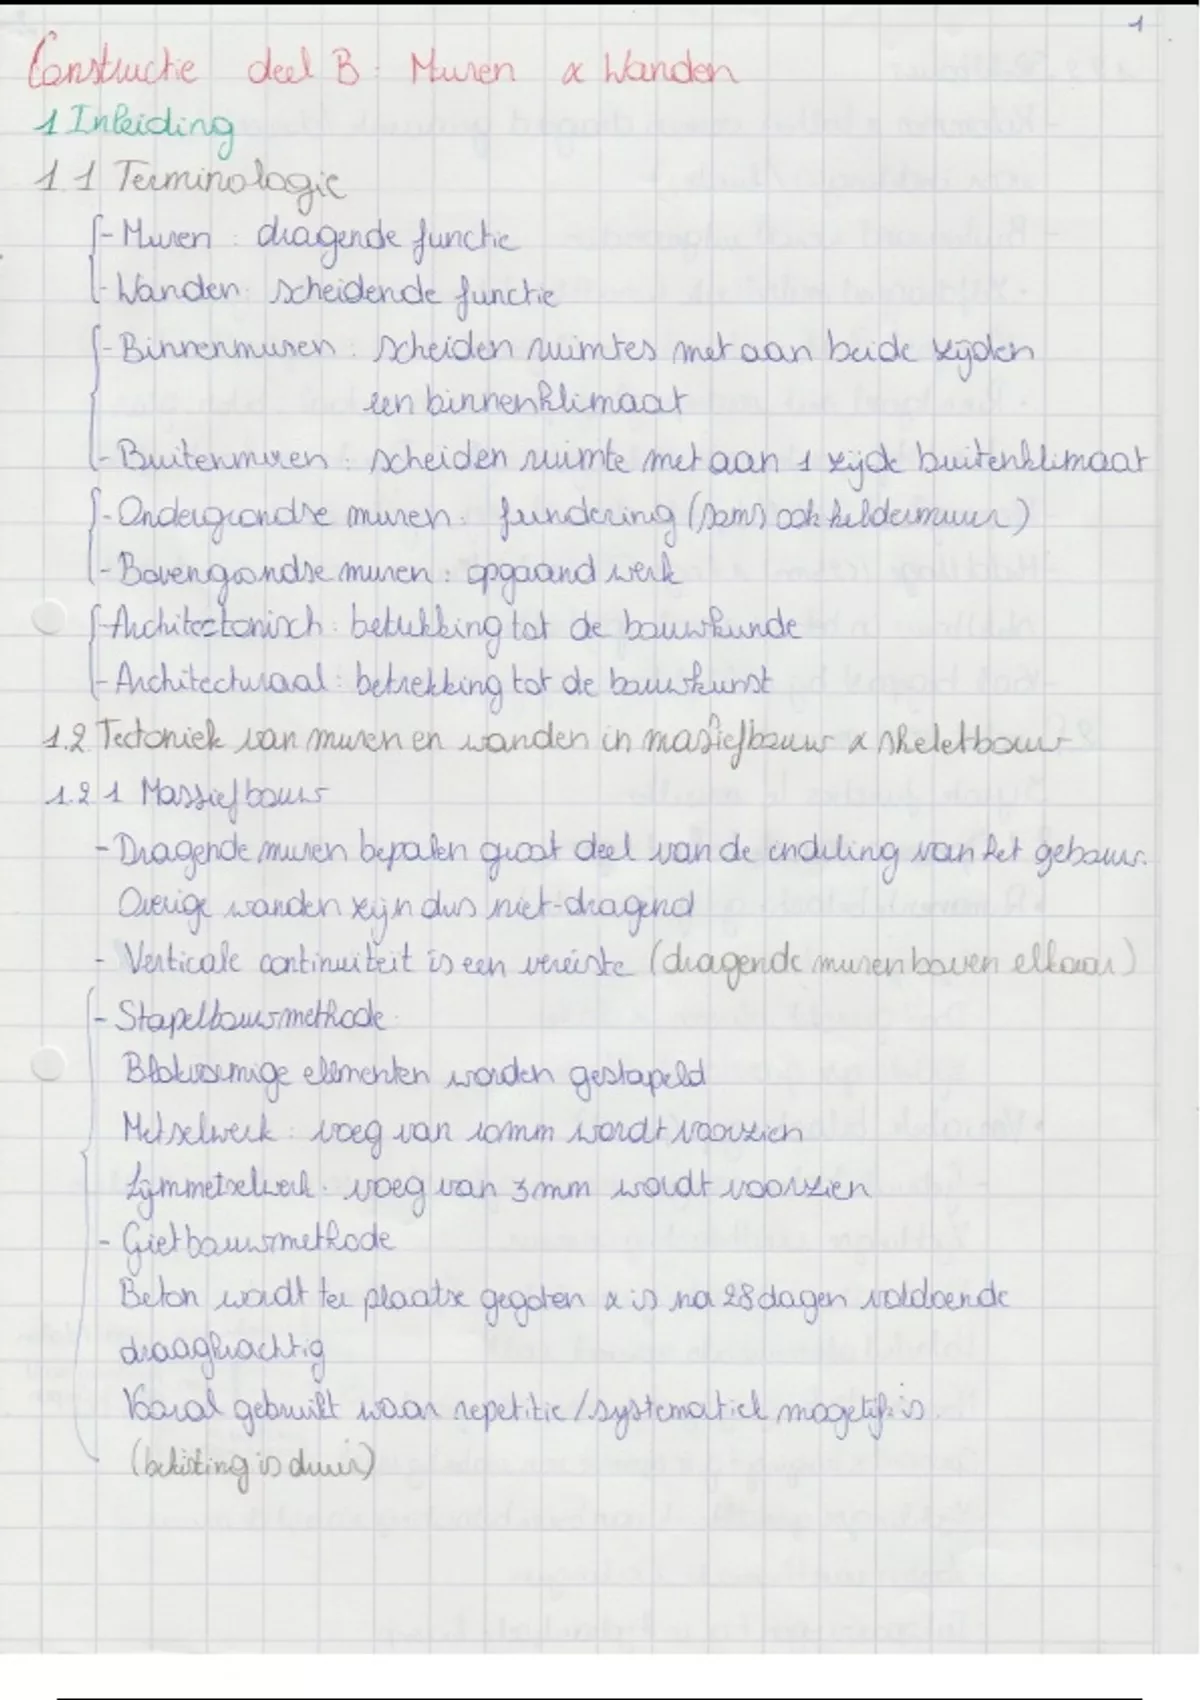 1
Constructie deel B: Muren & Wanden
1 Inleiding
1.1 Terminologie
- Muren: dragende functie
- Wanden: scheidende functie
- Binnenmuren: scheiden ruimtes met aan beide zijden
een binnenklimaat
- Buitenmuren: scheiden ruimte met aan 1 zijde buitenklimaat
- Ondergrondse muren: fundering (soms ook keldermuur)
- Bovengrondse muren: opgaand werk
- Architectonisch: betrekking tot de bouwkunde
- Architecturaal: betrekking tot de bouwkunst
1.2 Tectoniek van muren en wanden in massiefbouw & skeletbouw
1.2.1 Massiefbouw
- Dragende muren bepalen groot deel van de indeling van het gebouw.
Overige wanden zijn dus niet-dragend
- Verticale continuiteit is een vereiste (dragende muren boven elkaar)
- Stapelbouwmethode:
Blokvormige elementen worden gestapeld
Metselwerk: voeg van 10mm wordt voorzien
Lijmmetselwerk: voeg van 3mm wordt voorzien
- Gietbouwmethode
Beton wordt ter plaatse gegoten & is na 28 dagen voldoende
draagkrachtig
Vooral gebruikt waar repetitie/systematiek mogelijk is.
(bekisting is duur)